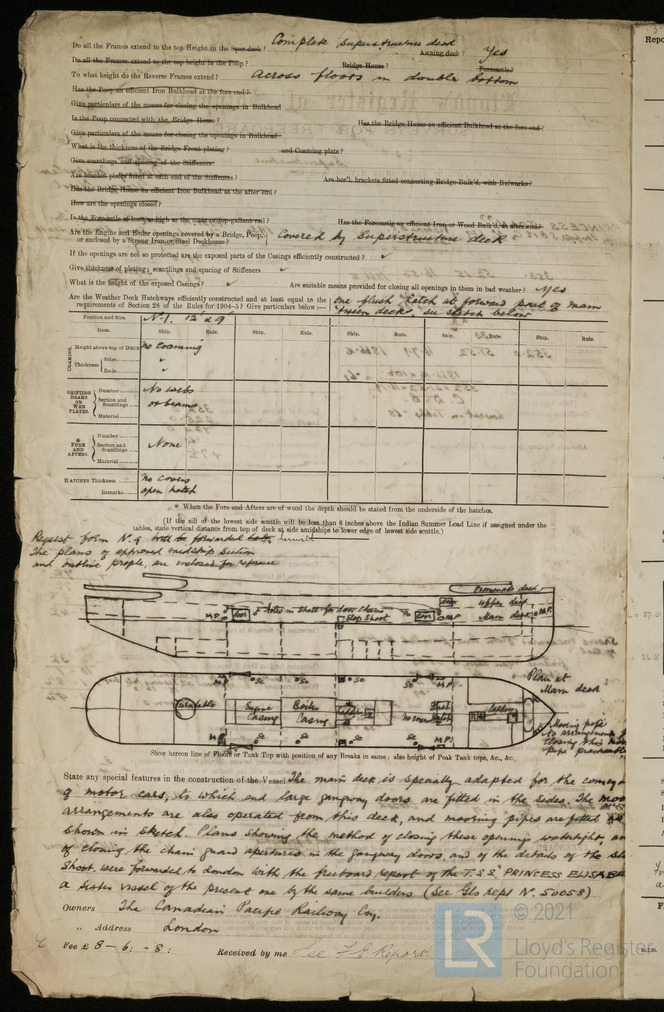 Do all the Frames extend to the top Height in the Spar deck? Complete Superstructure deck Awning deck? Yes
Do all the Frames extend to the top height in the Poop? Bridge House? Forecastle?
To what height do the Reverse Frames extend? Across floors in double bottom
Has the Poop an efficient Iron Bulkhead at the fore end?
Give particulars of the means for closing the openings in Bulkhead
Is the Poop connected with the Bridge House? Has the Bridge House an efficient Bulkhead at the fore end?
Give particulars of the means for closing the openings in Bulkhead
What is the thickness of the Bridge Front plating? and Coaming plate?
Give scantlings and spacing of the Stiffeners
Are bracket plates fitted at each end of the Stiffeners? Are hor'l. brackets fitted connecting Bridge Bulk'd. with Bulwarks?
Has the Bridge House an efficient Iron Bulkhead at the after end?
How are the openings closed?
Is the Forecastle at least as high as the main or top-gallant rail? Has the Forecastle an efficient Iron or Wood Bulk'd. at after end?
Are the Engine and Boiler openings covered by a Bridge, Poop, or enclosed by a Strong Iron or Steel Deckhouse? Covered by Superstructure deck
If the openings are not so protected are the exposed parts of the Casings efficiently constructed? ✓
Give thickness of plating; scantlings and spacing of Stiffeners ✓
What is the height of the exposed Casings? ✓ Are suitable means provided for closing all openings in them in bad weather? Yes
Are the Weather Deck Hatchways efficiently constructed and at least equal to the requirements of Section 28 of the Rules for 1904-5? Give particulars below:— One flush hatch at forward part of main
deck, see sketch below
Position and Size. No 1, 12' x 9'
Item. Ship. Rule. Ship. Rule. Ship. Rule. Ship. Rule. Ship. Rule.
COAMING Height above top of DECK No Coaming
Thickness Sides "
Ends "
SHIFTING BEAMS OR WEB PLATES. Number No webs
Section and Scantlings or beams
Material
* FORE AND AFTERS. Number
Section and Scantlings None
Material
HATCHES Thickness No Covers
Remarks open hatch
* When the Fore-and-Afters are of wood the depth should be stated from the underside of the hatches.
(If the sill of the lowest side scuttle will be less than 6 inches above the Indian Summer Load Line if assigned under the
tables, state vertical distance from top of deck at side amidships to lower edge of lowest side scuttle.)
Request form No. 9 to be forwarded
The plans of approved midship section
and outline profile, are enclosed for reference
Promenade deck
Upper deck
Main deck
M.P. door holes in Shell for door Chains
Slop Shoot
door M.P. M.P.
Plan at
Main deck
Turntable
Engine
Casing
Boiler
Casing
M.P. Sc Sc Sc Sc M.P.
Mooring pipes
Show hereon line of Floors or Tank Top with position of any Breaks in same: also height of Peak Tank tops, &c., &c.
State any special features in the construction of the Vessel The main deck is specially adapted for the convey
of motor cars, to which end large gangway doors are fitted in the sides. The moo
arrangements are also operated from this deck, and mooring pipes are fitted as
shown in sketch. Plans showing the method of closing these openings watertight, an
of closing the chain guard apertures in the gangway doors, and of the details of the sl
Shoot, were forwarded to London with the freeboard report of the T.S.S. "PRINCESS ELISABE
a sister vessel of the present one by the same builders (See Gls Rept No. 50058)
Owners The Canadian Pacific Railway Coy.
" Address London
Fee £ 8 - 6 : - 8 : Received by me See F.E. Report.
© 2021
LR
Lloyd's Register
Foundation